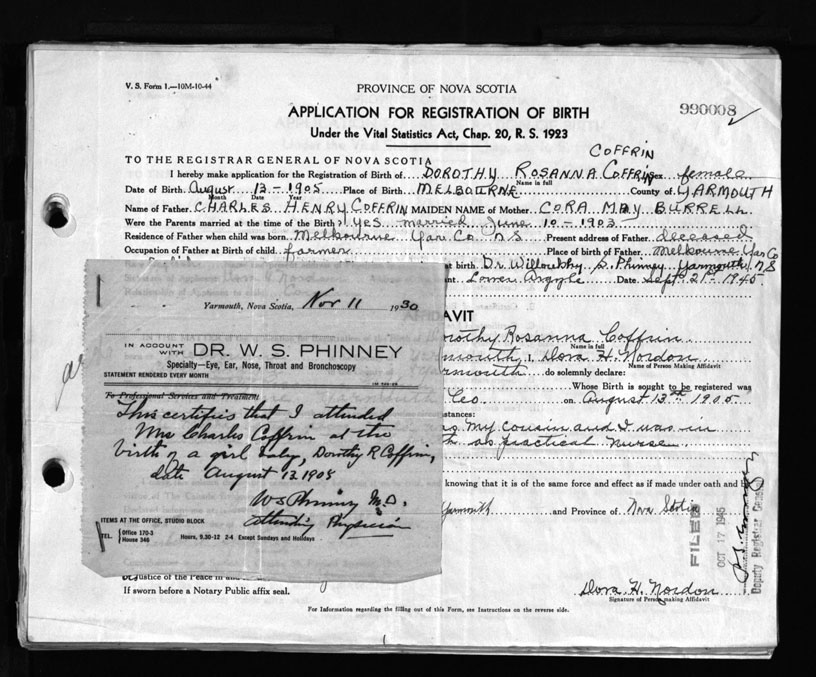 V. S. Form 1.—10M-10-44
PROVINCE OF NOVA SCOTIA
990008
APPLICATION FOR REGISTRATION OF BIRTH
Under the Vital Statistics Act, Chap. 20, R. S. 1923
COFFRIN
TO THE REGISTRAR GENERAL OF NOVA SCOTIA
I hereby make application for the Registration of Birth of DOROTHY ROSANNA COFFRIN Sex female
Name in full
Date of Birth August 13 - 1905 Place of Birth MELBOURNE County of YARMOUTH
Month Date Year
Name of Father CHARLES HENRY COFFRIN MAIDEN NAME of Mother CORA MAY BURRELL
Were the Parents married at the time of the Birth? Yes married June 10 - 1903
Residence of Father when child was born Melbourne Yar. Co N.S Present address of Father deceased
Occupation of Father at Birth of child farmer Place of birth of Father Melbourne Yar Co
at birth Dr. Willoughby S. Phinney Yarmouth N S
Lower Argyle Date Sept. 21st - 1945
DAVIT
Dorothy Rosanna Coffrin
Name in full
I, Dora H. Nordon
Name of Person Making Affidavit
do solemnly declare:
Whose Birth is sought to be registered was
Co. on August 13th 1905
my cousin and I was in
as practical nurse
knowing that it is of the same force and effect as if made under oath and
Yarmouth and Province of Nova Scotia
FILED
OCT 17 1945
Deputy Registrar General
Yarmouth, Nova Scotia, Nov 11 1930
IN ACCOUNT WITH DR. W. S. PHINNEY
Specialty—Eye, Ear, Nose, Throat and Bronchoscopy
STATEMENT RENDERED EVERY MONTH
To Professional Services and Treatment
This certifies that I attended
Mrs Charles Coffrin at the
birth of a girl baby, Dorothy R Coffrin,
date August 13 1905
WS Phinney M.D.
Attending Physician
ITEMS AT THE OFFICE, STUDIO BLOCK
TEL. Office 170-3
House 346
Hours, 9.30-12 2-4 Except Sundays and Holidays
Justice of the Peace in and
If sworn before a Notary Public affix seal.
Dora H. Nordon
Signature of Person making Affidavit
For Information regarding the filling out of this Form, see Instructions on the reverse side.